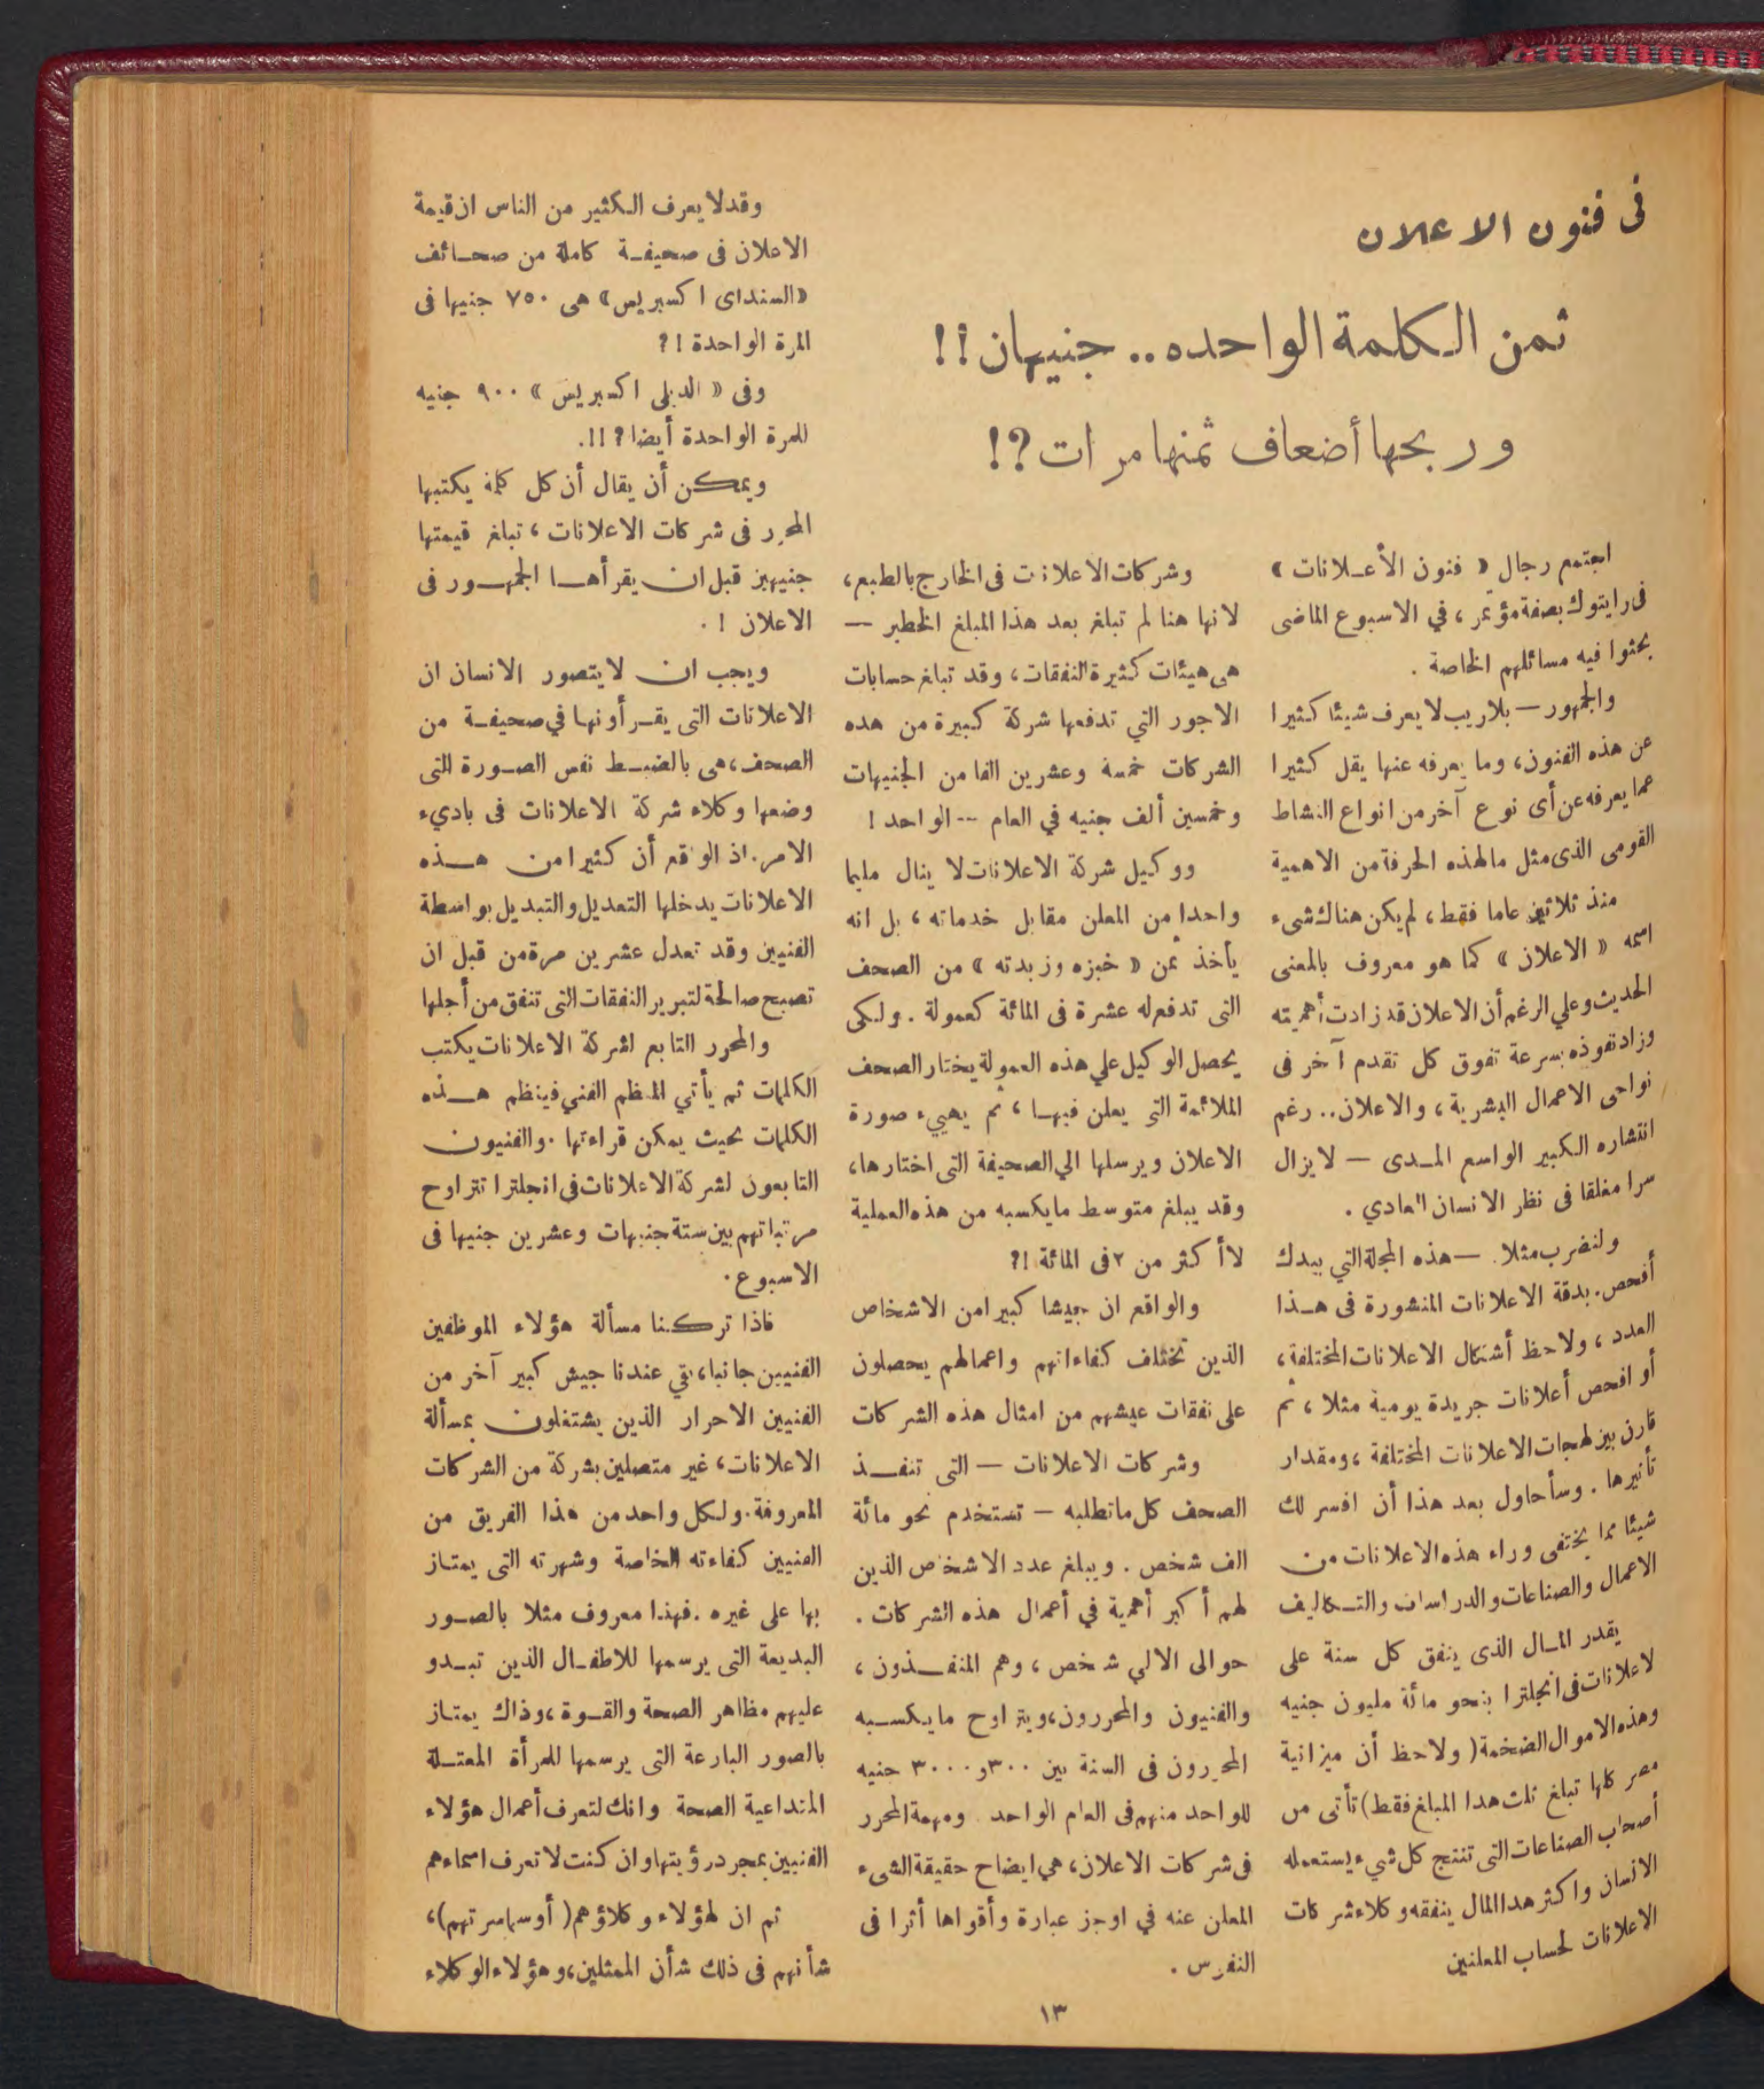 فى فنون الاعلان
ثمن الكلمة الواحده .. جنيهان !!
وربحها أضعاف ثمنها مرات ؟!
اجتمع رجال « فنون الأعلانات »
فى رايتوك بصفة مؤتمر ، في الاسبوع الماضى
بحثوا فيه مسائلهم الخاصة .
والجمهور — بلاريب لا يعرف شيئا كثيرا
عن هذه الفنون، وما يعرفه عنها يقل كثيرا
عما يعرفه عن أى نوع آخر من انواع النشاط
القومى الذى مثل مالهذه الحرفة من الاهمية
منذ ثلاثين عاما فقط ، لم يكن هناك شىء
اسمه « الاعلان » كما هو معروف بالمعنى
الحديث وعلي الرغم أن الاعلان قد زادت أهميته
وزاد نفوذه بسرعة تفوق كل تقدم آخر فى
نواحى الاعمال البشرية ، والاعلان .. رغم
انتشاره الكبير الواسع المدى — لا يزال
سرا مغلقا فى نظر الانسان العادي .
ولنضرب مثلا — هذه المجلة التي بيدك
أفحص . بدقة الاعلانات المنشورة فى هذا
العدد ، ولاحظ أشكال الاعلانات المختلفة ،
أو افحص أعلانات جريدة يومية مثلا ، ثم
قارن بين لهجات الاعلانات المختلفة ، ومقدار
تأثيرها . وسأحاول بعد هذا أن افسر لك
شيئا مما يختفى وراء هذه الاعلانات من
الاعمال والصناعات والدراسات والتكاليف
يقدر المال الذى ينفق كل سنة على
لاعلانات فى انجلترا بنحو مائة مليون جنيه
وهذه الاموال الضخمة ( ولاحظ أن ميزانية
مصر كلها تبلغ ثلث هدا المبلغ فقط ) تأتى من
أصحاب الصناعات التى تنتج كل شيء يستعمله
الانسان واكثر هدا المال ينفقه وكلاء شركات
الاعلانات لحساب المعلنين
وشركات الاعلانات فى الخارج بالطبع ،
لانها هنا لم تبلغ بعد هذا المبلغ الخطير —
هى هيئات كثيرة النفقات ، وقد تبلغ حسابات
الاجور التي تدفعها شركة كبيرة من هده
الشركات خمسة وعشرين الفا من الجنيهات
وخمسين ألف جنيه في العام -- الواحد !
ووكيل شركة الاعلانات لا ينال مليما
واحدا من المعلن مقابل خدماته ، بل انه
يأخذ ثمن « خبزه وزبدته » من الصحف
التى تدفع له عشرة فى المائة كعمولة . ولكى
يحصل الوكيل علي هذه العمولة يختار الصحف
الملائمة التى يعلن فيها ، ثم يهييء صورة
الاعلان ويرسلها الي الصحيفة التى اختارها ،
وقد يبلغ متوسط مايكسبه من هذه العملية
لاأ كثر من ٢ فى المائة !؟
والواقع ان جيشا كبيرا من الاشخاص
الذين تختلف كفاءاتهم واعمالهم يحصلون
على نفقات عيشهم من امثال هذه الشركات
وشركات الاعلانات — التى تنفذ
الصحف كل ماتطلبه — تستخدم نحو مائة
الف شخص . ويبلغ عدد الاشخاص الذين
لهم أكبر أهمية في أعمال هذه الشركات .
حوالى الالي شخص ، وهم المنفذون ،
والفنيون والمحررون ، ويتراوح مايكسبه
المحررون فى السنة بين ٣٠٠ و ٣٠٠٠ جنيه
للواحد منهم فى العام الواحد ومهمة المحرر
فى شركات الاعلان ، هي ايضاح حقيقة الشىء
المعلن عنه في اوجز عبارة وأقواها أثرا فى
النفوس .
وقد لا يعرف الكثير من الناس ان قيمة
الاعلان فى صحيفة كاملة من صحائف
« السنداى اكسبريس » هى ٧٥٠ جنيها فى
المرة الواحدة !؟
وفى « الديلى اكسبريس » ٩٠٠ جنيه
للمرة الواحدة أيضا ؟!!.
ويمكن أن يقال أن كل كلمة يكتبها
المحرر فى شركات الاعلانات ، تبلغ قيمتها
جنيهين قبل ان يقرأها الجمهور فى
الاعلان ! .
ويجب ان لايتصور الانسان ان
الاعلانات التى يقرأونها في صحيفة من
الصحف ، هى بالضبط نفس الصورة التى
وضعها وكلاء شركة الاعلانات فى باديء
الامر. اذ الواقع أن كثيرا من هذه
الاعلانات يدخلها التعديل والتبديل بواسطة
الفنيين وقد تعدل عشرين مرة من قبل ان
تصبح صالحة لتبرير النفقات التى تنفق من أجلها
والمحرر التابع لشركة الاعلانات يكتب
الكلمات ثم يأتي المنظم الفني فينظم هذه
الكلمات بحيث يمكن قراءتها . والفنيون
التابعون لشركة الاعلانات فى انجلترا تتراوح
مرتباتهم بين ستة جنيهات وعشرين جنيها فى
الاسبوع .
فاذا تركنا مسألة هؤلاء الموظفين
الفنيين جانبا ، بقي عندنا جيش كبير آخر من
الفنيين الاحرار الذين يشتغلون بمسألة
الاعلانات ، غير متصلين بشركة من الشركات
المعروفة . ولكل واحد من هذا الفريق من
الفنيين كفاءته الخاصة وشهرته التى يمتاز
بها على غيره . فهذا معروف مثلا بالصور
البديعة التى يرسمها للاطفال الذين تبدو
عليهم مظاهر الصحة والقوة ، وذاك يمتاز
بالصور البارعة التى يرسمها للمرأة المعتلة
المتداعية الصحة وانك لتعرف أعمال هؤلاء
الفنيين بمجرد رؤيتها وان كنت لا تعرف اسماءهم
ثم ان لهؤلاء وكلاؤهم ( أوسماسرتهم ) ،
شأنهم فى ذلك شأن الممثلين ، وهؤلاء الوكلاء
١٣